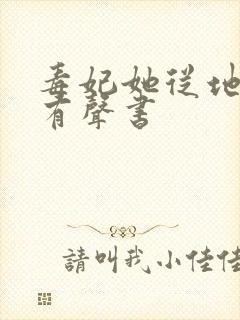 毒妃她從地
有聲書
請叫我小佳佳